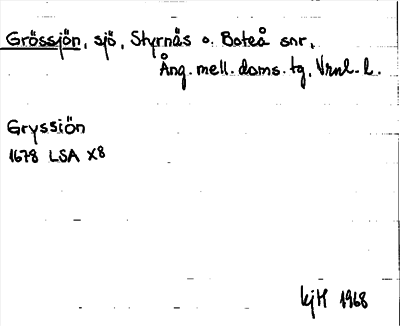 Grössjön, sjö, Styrnäs o. Boteå snr,
Ång. mell. doms. tg, Vrnl. l.
Gryssiön
1678 LSA X8
kjH 1968